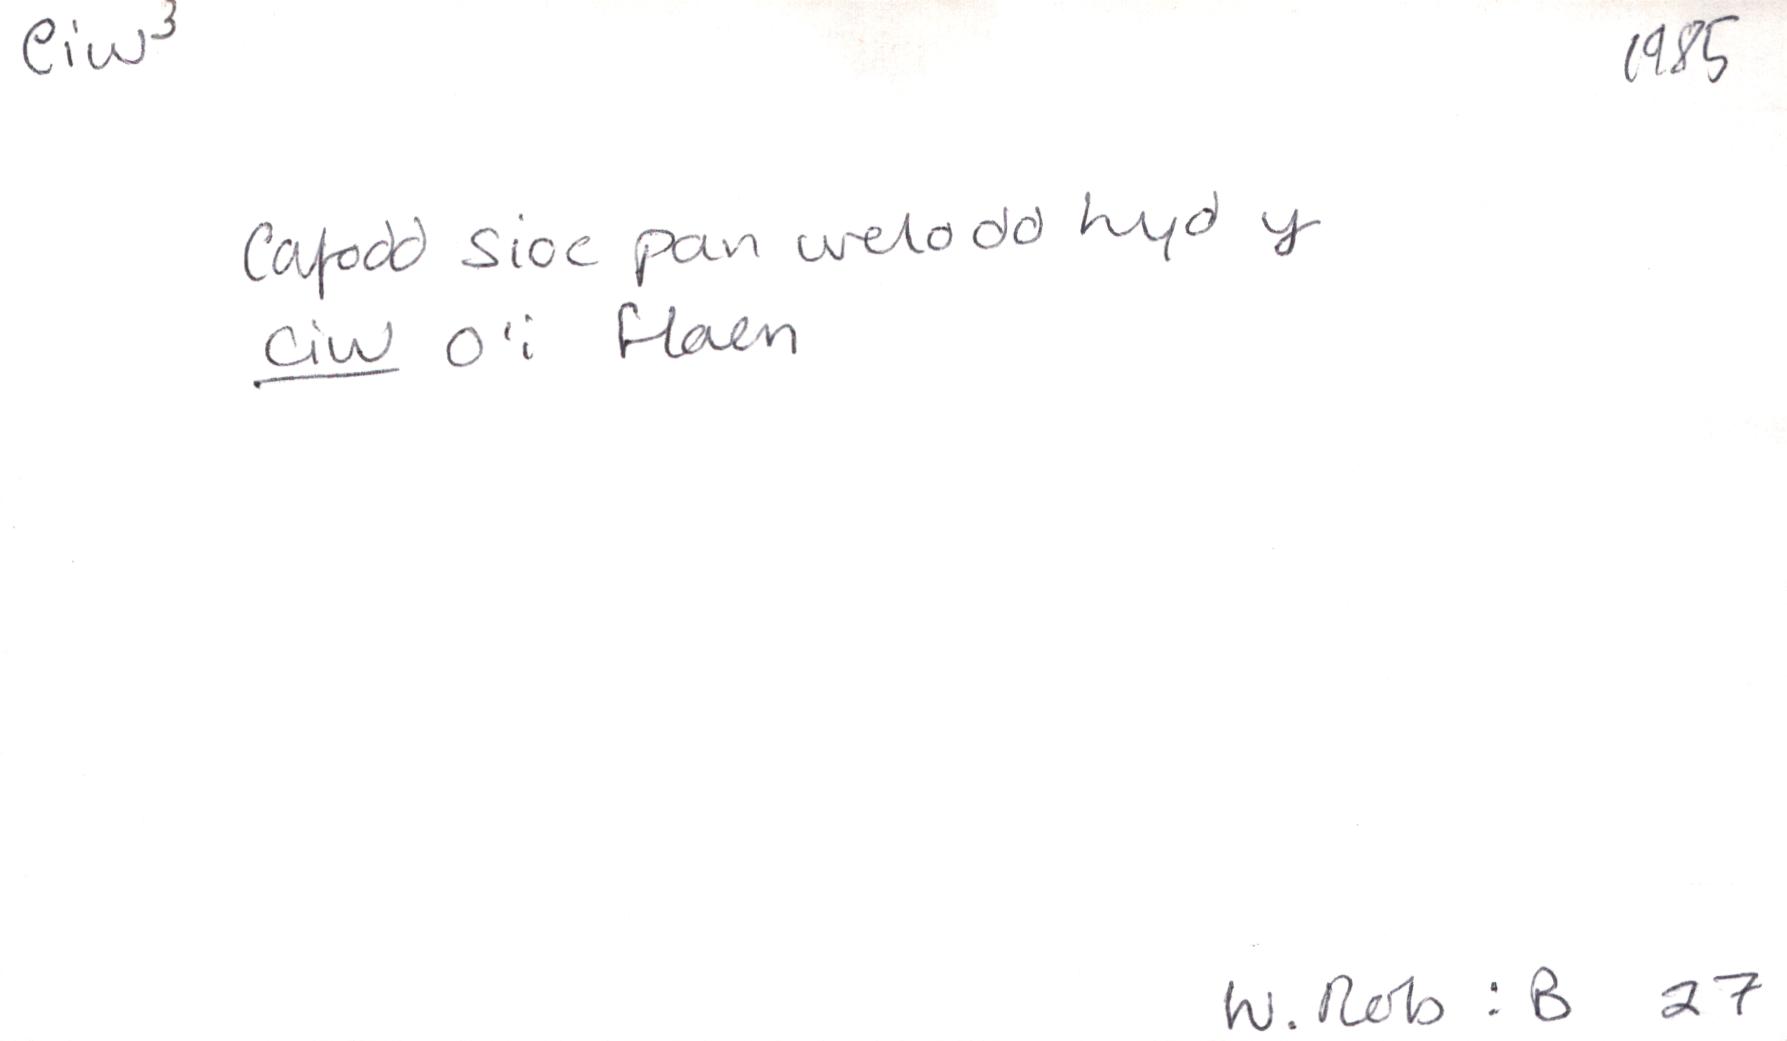 Ciw³ 1985
Cafodd sioc pan welodd hyd y
ciw o'i flaen
W. Rob : B 27